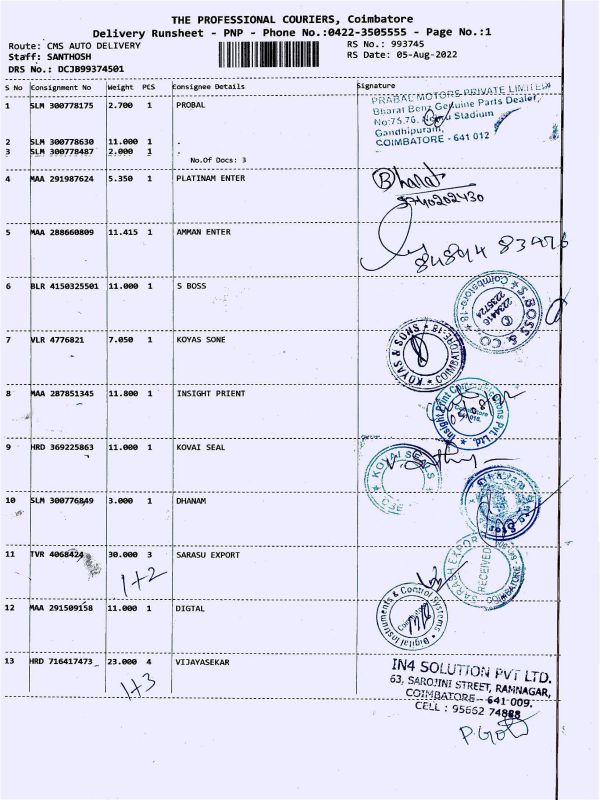 THE PROFESSIONAL COURIERS, Coimbatore
Delivery Runsheet - PNP - Phone No.:0422-3505555 - Page No.:1
Route: CMS AUTO DELIVERY
RS No.: 993745
Staff: SANTHOSH
RS Date: 05-Aug-2022
DRS No.: DCJB99374501
S No Consignment No Weight PCS Consignee Details Signature
1 SLM 300778175 2.700 1 PROBAL
PRABAL MOTORS PRIVATE LIMITED
Bharat Benz Genuine Parts Dealer,
No:75,76, Nehru Stadium
Gandhipuram,
COIMBATORE - 641 012
2 SLM 300778630 11.000 1 .
3 SLM 300778487 2.000 1 .
No.Of Docs: 3
4 MAA 291987624 5.350 1 PLATINAM ENTER
Bharat
9740202430
5 MAA 288660809 11.415 1 AMMAN ENTER
84894 83476
6 BLR 4150325501 11.000 1 S BOSS
S.BOSS & CO
Coimbatore-18
2234416
2235724
7 VLR 4776821 7.050 1 KOYAS SONE
KOYAS & SONS
COIMBATORE-18
8 MAA 287851345 11.800 1 INSIGHT PRIENT
Insight Print Pvt. Ltd.
Coimbatore
9 HRD 369225863 11.000 1 KOVAI SEAL
KOVAI SEALS
CBE
10 SLM 300776849 3.000 1 DHANAM
11 TVR 4068424 30.000 3 SARASU EXPORT
1+2
SARASU EXPORT
RECEIVED
COIMBATORE
12 MAA 291509158 11.000 1 DIGTAL
Digital Instruments & Control Systems
Coimbatore
13 HRD 716417473 23.000 4 VIJAYASEKAR
1+3
IN4 SOLUTION PVT LTD.
63, SAROJINI STREET, RAMNAGAR,
COIMBATORE - 641 009.
CELL : 95662 74888